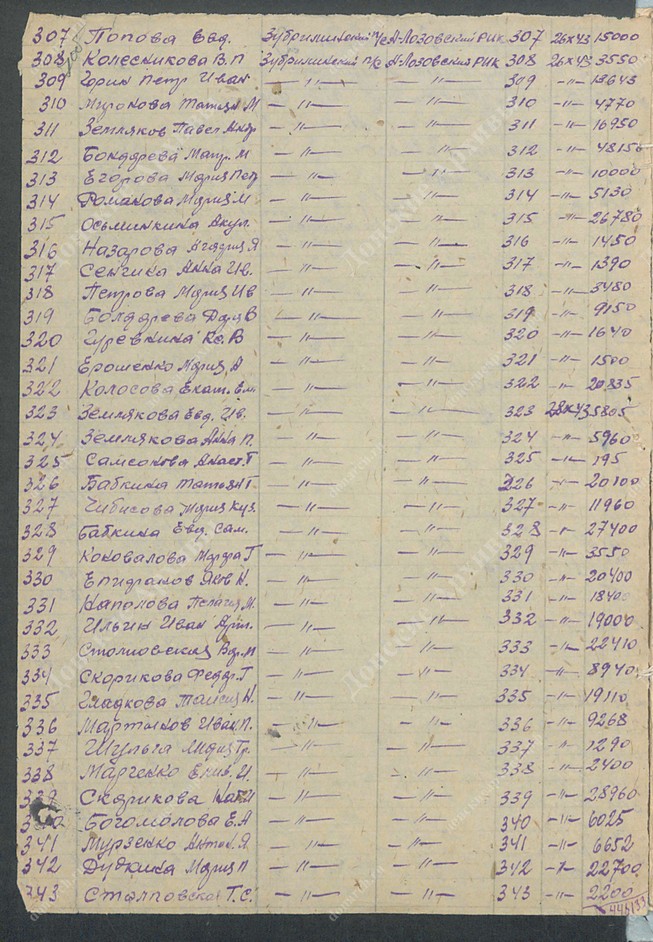 307 Попова Евд. Зубрилинский п/с А-Лозовский РИК 307 26X43 15000
308 Колесникова В.П Зубрилинский п/с А-Лозовский РИК 308 26X43 3550
309 Петр Иван —〃— —〃— 309 —〃— 13643
310 М —〃— —〃— 310 —〃— 4770
311 Земляков Павел —〃— —〃— 311 —〃— 16950
312 Бондарева М —〃— —〃— 312 —〃— 48150
313 Егорова Мария Пет —〃— —〃— 313 —〃— 10000
314 Романова Мария М —〃— —〃— 314 —〃— 5130
315 Осьминкина Акул. —〃— —〃— 315 —〃— 26780
316 Назарова Агафия Я —〃— —〃— 316 —〃— 1450
317 Сенгина Анна Ив. —〃— —〃— 317 —〃— 1390
318 Петрова Мария Ив —〃— —〃— 318 —〃— 3480
319 Болдарева В —〃— —〃— 319 —〃— 9150
320 Гуревнина В —〃— —〃— 320 —〃— 1640
321 Ерошенко Мария А —〃— —〃— 321 —〃— 1500
322 Колосова Екат. Ем —〃— —〃— 322 —〃— 20835
323 Землякова Евд. Ив. —〃— —〃— 323 28X43 5805
324 Землякова Анна П. —〃— —〃— 324 —〃— 5960
325 Самсонова Анаст. Г —〃— —〃— 325 —〃— 195
326 Бабкина Татьян Г —〃— —〃— 326 —〃— 20100
327 Чибисова Мария Куз. —〃— —〃— 327 —〃— 11960
328 Бабкина Евд. Сам. —〃— —〃— 328 —〃— 27400
329 Коновалова Марфа Г —〃— —〃— 329 —〃— 3550
330 Епифанов Яков Н. —〃— —〃— 330 —〃— 20400
331 Наполова Пелагея М. —〃— —〃— 331 —〃— 18400
332 Ильин Иван —〃— —〃— 332 —〃— 19000
333 М —〃— —〃— 333 —〃— 22410
334 Скорикова Федр. Г —〃— —〃— 334 —〃— 8940
335 Гладкова Таисия Н. —〃— —〃— 335 —〃— 19110
336 Мартынов Иван П. —〃— —〃— 336 —〃— 9268
337 Шульга Мария Гр. —〃— —〃— 337 —〃— 1290
338 Марченко И. —〃— —〃— 338 —〃— 2400
339 Скорикова —〃— —〃— 339 —〃— 28960
340 Богомолова Е.А —〃— —〃— 340 —〃— 6025
341 Мурзенко Антон. Я. —〃— —〃— 341 —〃— 6652
342 Дудкина Мария П —〃— —〃— 342 —〃— 22700
343 Столповская Т.С. —〃— —〃— 343 —〃— 2200